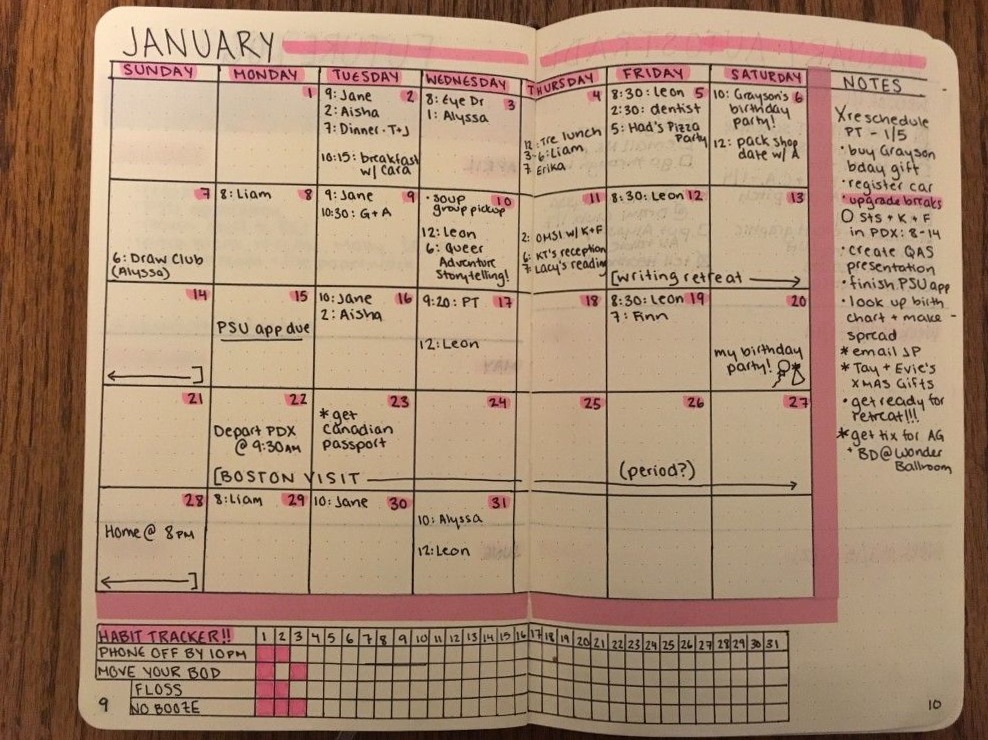 JANUARY
SUNDAY MONDAY TUESDAY WEDNESDAY THURSDAY FRIDAY SATURDAY
1
2
9: Jane
2: Aisha
7: Dinner - T+J
10:15: breakfast
w/ Cara
3
8: Eye Dr
1: Alyssa
4
12: Tre lunch
3-6: Liam
7: Erika
5
8:30: Leon
2:30: dentist
5: Had's Pizza
Party
6
10: Grayson's
birthday
party!
12: pack shop
date w/ A
7
6: Draw Club
(Alyssa)
8
8: Liam
9
9: Jane
10:30: G+A
10
• soup
group pickup
12: Leon
6: Queer
Adventure
Storytelling!
11
2: OMSI w/ K+F
6: KT's reception
7: Lacy's reading
12
8:30: Leon
13
[writing retreat
14
]
15
PSU app due
16
10: Jane
2: Aisha
17
9:20: PT
12: Leon
18
19
8:30: Leon
7: Finn
20
my birthday
party!
21
22
Depart PDX
@ 9:30AM
23
* get
Canadian
passport
24
25
26
(period?)
27
[BOSTON VISIT
28
Home @ 8PM
]
29
8: Liam
30
10: Jane
31
10: Alyssa
12: Leon
NOTES
X reschedule
PT - 1/5
• buy Grayson
bday gift
• register car
• upgrade breaks
O StS + K + F
in PDX: 8-14
• create QAS
presentation
• finish PSU app
• look up birth
chart + make
spread
* email JP
* Tay + Evie's
XMAS Gifts
• get ready for
retreat!!!
* get tix for AG
+ BD @ Wonder
Ballroom
HABIT TRACKER!! 1 2 3 4 5 6 7 8 9 10 11 12 13 14 15 16 17 18 19 20 21 22 23 24 25 26 27 28 29 30 31
PHONE OFF BY 10PM
MOVE YOUR BOD
FLOSS
NO BOOZE
9
10